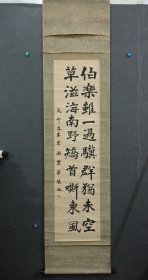 伯樂雖一過驥群猶未空
草滋海南野矯首嘶東風